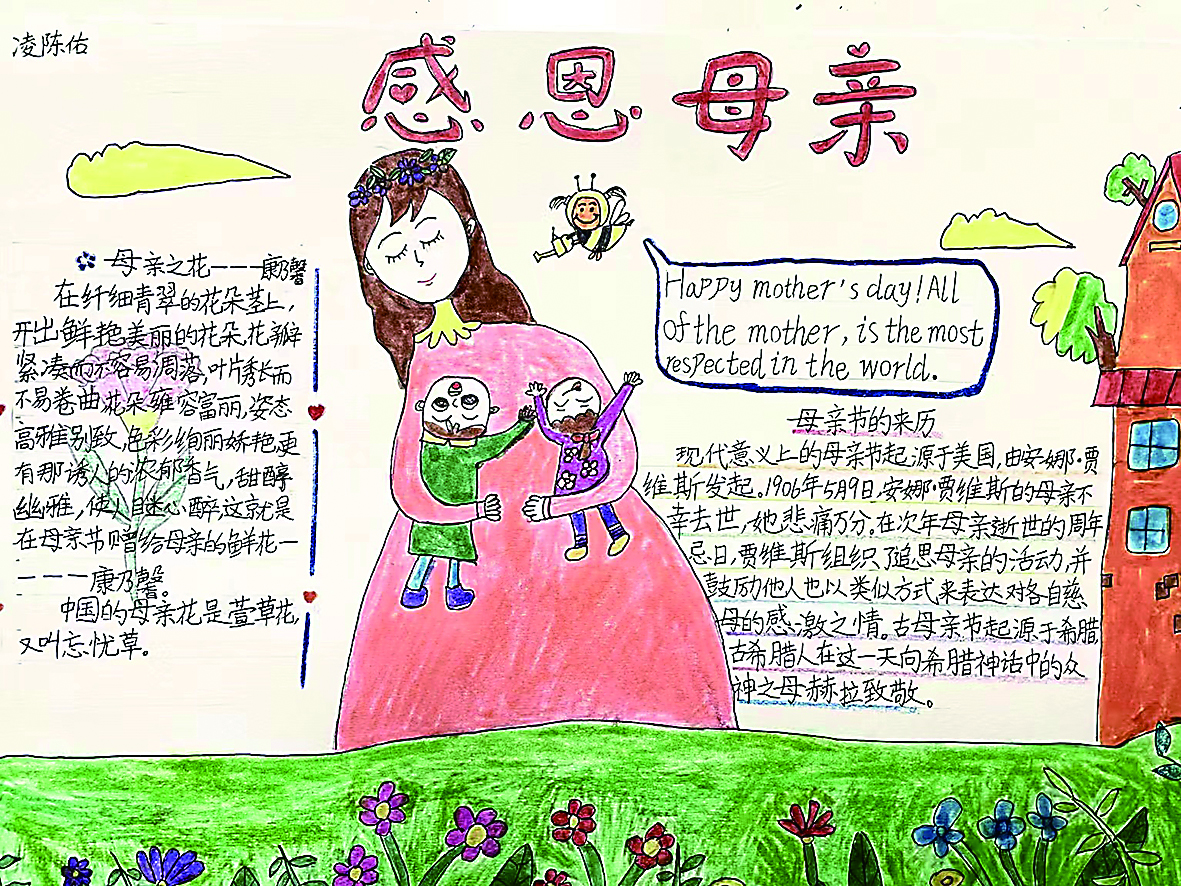 凌陈佑
感恩母亲
母亲之花———康乃馨
在纤细青翠的花朵茎上,
开出鲜艳美丽的花朵,花瓣
紧凑而不容易周落,叶片秀长而
不易卷曲花朵雍容富丽,姿态
高雅别致,色彩绚丽娇艳,更
有那诱人的浓郁香气,甜醇
幽雅,使人目迷心醉,这就是
在母亲节赠给母亲的鲜花一
———康乃馨。
中国的母亲花是萱草花,
又叫忘忧草。
Happy mother's day! All
of the mother, is the most
respected in the world.
母亲节的来历
现代意义上的母亲节起源于美国,由安娜·贾
维斯发起.1906年5月9日,安娜·贾维斯的母亲不
幸去世,她悲痛万分.在次年母亲逝世的周年
忌日,贾维斯组织了追思母亲的活动,并
鼓励他人也以类似方式来表达对各自慈
母的感激之情。古母亲节起源于希腊,
古希腊人在这一天向希腊神话中的众
神之母赫拉致敬。